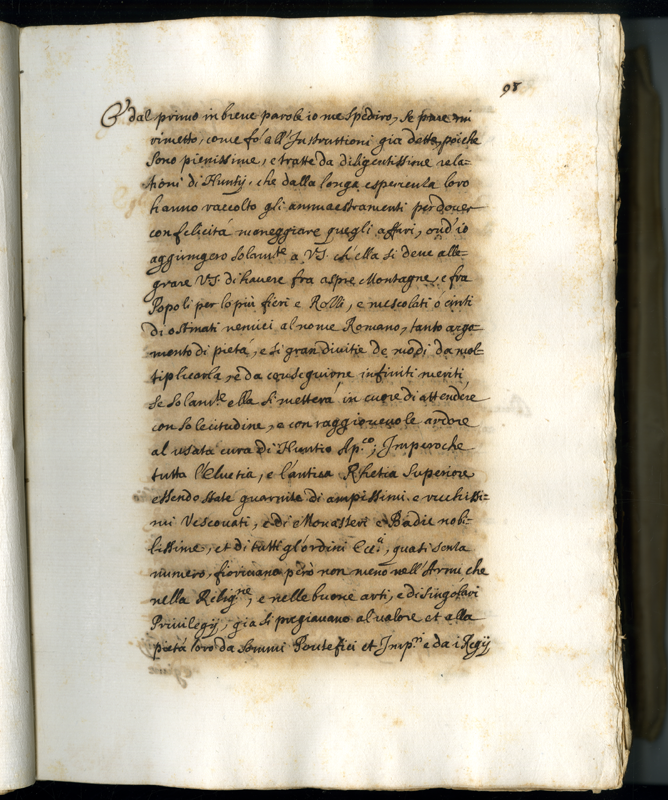 98
Et dal primo in breve parole io me spediro, se pure mi
rimetto, come fò all'Instruttioni già dette, poiche
sono pienissime, e tratte da diligentissime rela-
tioni di Nuntij, che dalla longa esperienza loro
hanno raccolto gli ammaestramenti per dover
con felicità maneggiare quegli affari, ond'io
aggiungero solamte a V.S. ch'ella si deve alle-
grare V.S. di havere fra aspre Montagne, e fra
Popoli per lo più fieri e Rozzi, e mescolati o cinti
di ostinati nemici al nome Romano, tanto argo-
mento di pietà, e si gran divitie de modi da mol-
tiplicarla, e da conseguirne infiniti meriti,
se solamte ella si metterà in cuore di attendere
con solecitudine, e con raggionevole ardore
al usata cura di Nuntio Ap.co; Imperoche
tutta l'Elvetia, e l'antica Rhetia Superiore
essendo state guarnite di ampissimi e ricchissi-
mi Vescovati, e di Monasteri e Badie nobi-
lissime, et di tutti gl'ordini Ecc.ci, quasi senza
numero, fiorivano però non meno nell'Armi che
nella Religne, e nelle buone arti, e di singolari
Privilegij, già si pregiavano al valore et alla
pietà loro da Sommi Pontefici et Imp.ri e da i Regij